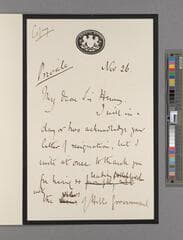 Copy
Private
Nov 26.
My dear Sir Henry,
I will in a
day or two acknowledge your
letter of resignation, but I
write at once to thank you
for having so
the of Hill Government